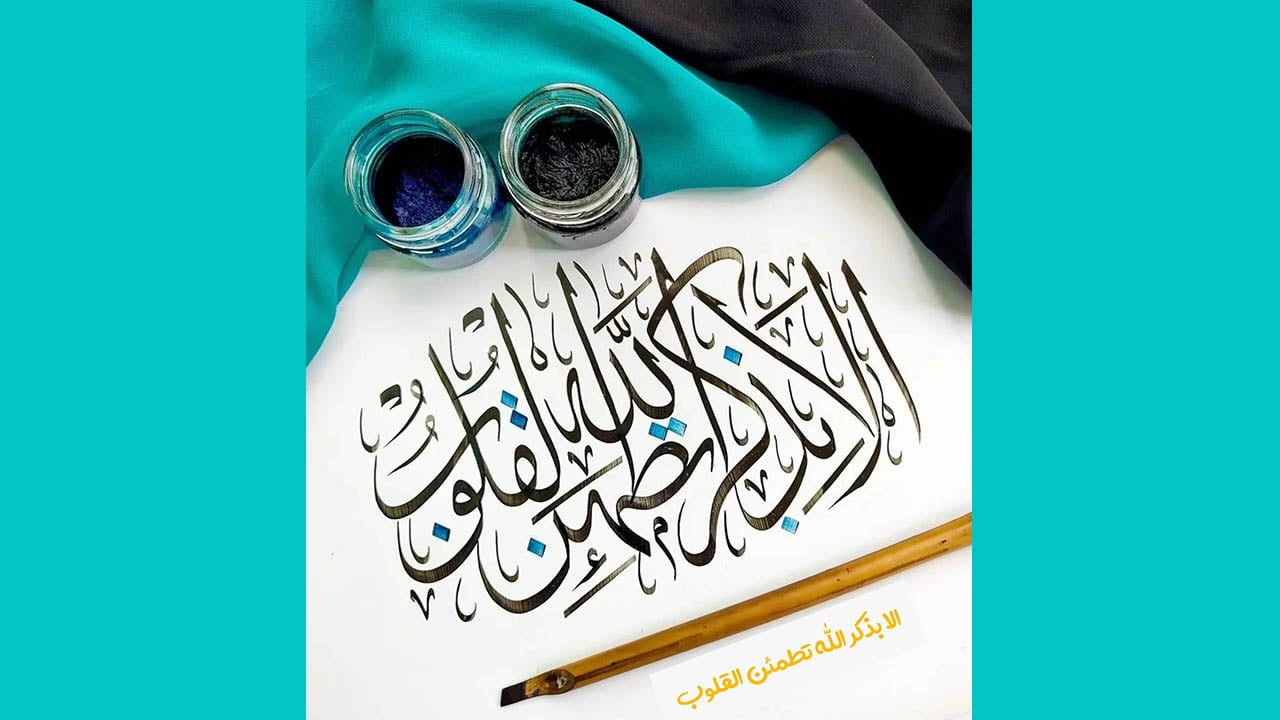 ألا بذكر الله تطمئن القلوب
الا بذكر الله تطمئن القلوب